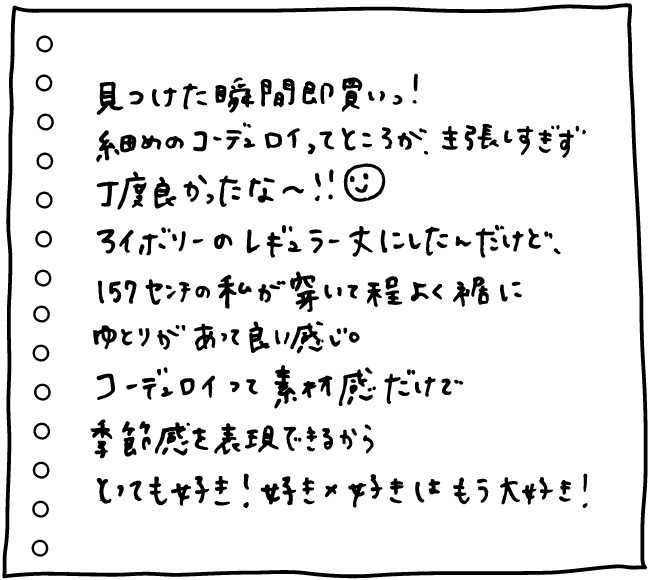 見つけた瞬間即買いっ!
細めのコーデュロイってところが、主張しすぎず
丁度良かったな〜!!
3イボリーのレギュラー丈にしたんだけど、
157センチの私が穿いて程よく裾に
ゆとりがあって良い感じ。
コーデュロイって素材感だけで
季節感を表現できるから
とっても好き!好き×好きはもう大好き!